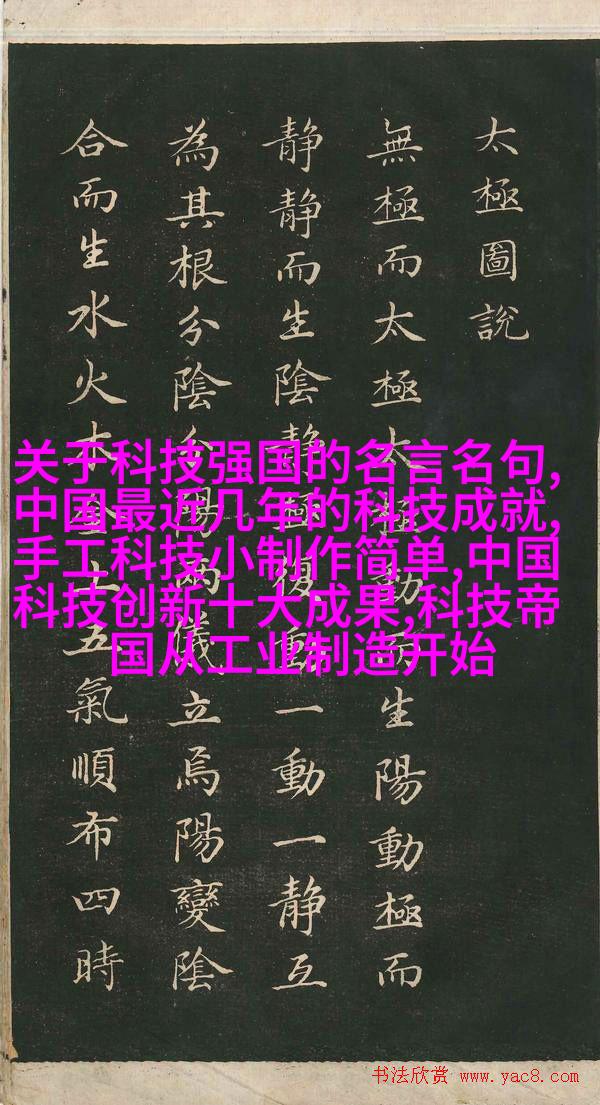 太極圖說
無極而太極太極動而生陽動極而
静静而生陰静極復動一動一静互
為其根分陰分陽兩儀立焉陽變陰
合而生水火木金土五氣順布四時
关于科技强国的名言名句,
中国最近几年的科技成就,
手工科技小制作简单,中国
科技创新十大成果,科技帝
国从工业制造开始
书法欣赏 www.yac8.com